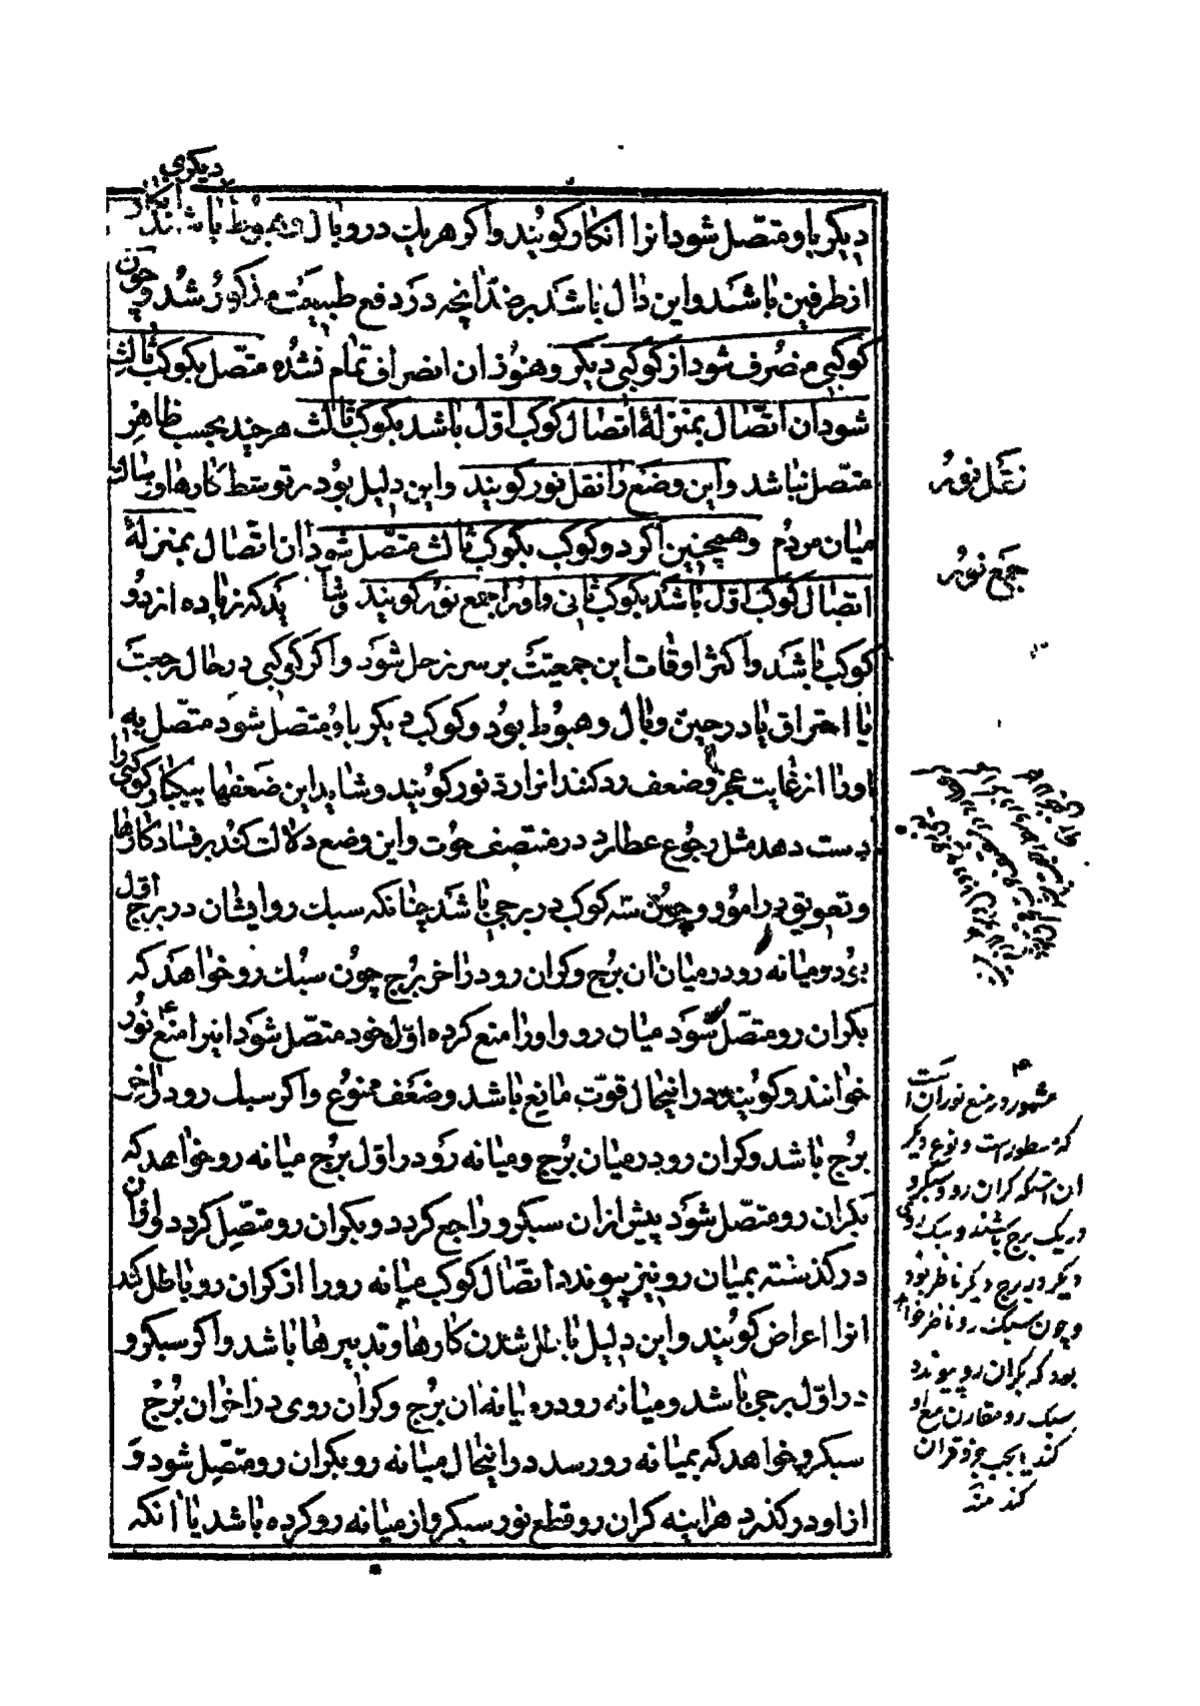 دیکری
دیکر باو متصل شود انرا انکار کویند و اکر هر یک در وبال و هبوط باشند
از طرفین باشد و این دال باشد بر ضد انچه در دفع طبیعت مذکور شد و چون
کوکبی منصرف شود از کوکبی دیکر و هنوز ان انصراف تمام نشده متصل بکوکب ثالث
شود ان اتصال بمنزلهٔ اتصال کوکب اول باشد بکوکب ثالث هرچند بحسب ظاهر
متصل نباشد و این وضع را نقل نور کویند و این دلیل بود بر توسط کارها و رسالت
میان مردم و همچنین اکر دو کوکب بکوکب ثالث متصل شود ان اتصال بمنزلهٔ
اتصال کوکب اول باشد بکوکب ثانی و اورا جمع نور کویند و شاید که زیاده از دو
کوکب باشد و اکثر اوقات این جمعیت بر سر زحل شود و اکر کوکبی در حال رجعت
یا احتراق یا در حین وبال و هبوط بود و کوکب دیکر باو متصل شود متصل به
اورا از غایت عجز و ضعف رد کند انرا رد نور کویند و شاید این ضعفها بیکبار کوکبی را
دست دهد مثل رجوع عطارد در منتصف حوت و این وضع دلالت کند بر فساد کارها
و تعویق در امور و چون سه کوکب در برجی باشد چنانکه سبک روایشان در برج اول
بود و میانه رو در میان ان برج و کران رو در اخر برج چون سبک رو خواهد که
بکران رو متصل شود میان رو اورا منع کرده اول خود متصل شود اینرا منع نور
خوانند و کویند در اینحال قوت مانع باشد و ضعف ممنوع و اکر سبک رو در اخر
برج باشد و کران رو در میان برج و میانه رو در اول برج میانه رو خواهد که
بکران رو متصل شود پیش از ان سبکرو راجع کردد و بکران رو متصل کردد و از ان
در کذشته بمیان رو نیز پیوندد اتصال کوکب میانه رو را از کران رو باطل کند
انرا اعراض کویند و این دلیل باطل شدن کارها و تدبیرها باشد و اکر سبکرو
در اول برجی باشد و میانه رو در میانه ان برج و کران روی در اخر ان برج
سبکرو خواهد که بمیانه رو رسد در اینحال میانه رو بکران رو متصل شود و
از او در کذرد هراینه کران رو قطع نور سبکرو از میانه رو کرده باشد یا انکه
نقل نور
جمع نور
مشهور در منع نور ان است
که مسطورست و نوع دیکر
ان استکه کران رو و سبکرو
در یک برج باشند و سبک روی
دیکر در برج دیکر ناظر بود
و چون سبک رو ناظر خواهد
بود که بکران رو پیوندد
سبک رو مقارن منع او
کند
کند منه